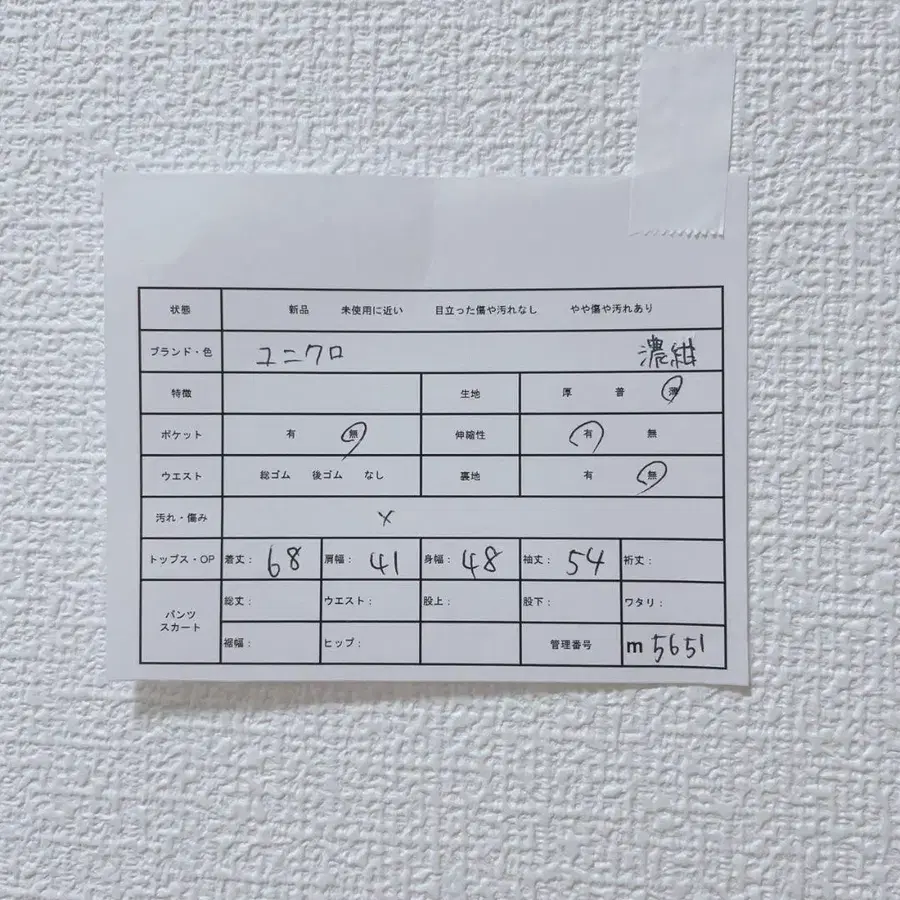 状態 新品 未使用に近い 目立った傷や汚れなし やや傷や汚れあり
ブランド・色 ユニクロ 濃紺
特徴 生地 厚 普 薄
ポケット 有 無 伸縮性 有 無
ウエスト 総ゴム 後ゴム なし 裏地 有 無
汚れ・傷み ×
トップス・OP 着丈: 68 肩幅: 41 身幅: 48 袖丈: 54 裄丈:
パンツ スカート 総丈: ウエスト: 股上: 股下: ワタリ:
裾幅: ヒップ: 管理番号 m 5651